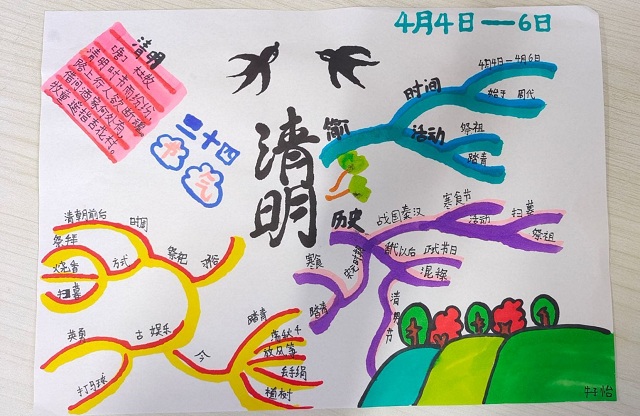 4月4日—6日
清明
唐 杜牧
清明时节雨纷纷,
路上行人欲断魂。
借问酒家何处有,
牧童遥指杏花村。
二十四
节气
清明
简
时间
4月4日—4月6日
始于 周代
活动
祭祖
踏青
历史
战国秦汉
寒食节
活动
扫墓
祭祖
唐代以后
正式节日
混操
清明节
寒食
踏青
清明前后
时间
祭拜
烧香
方式
扫墓
祭祀
习俗
古 娱乐
打马球
今
踏青
荡秋千
放风筝
丢手绢
植树